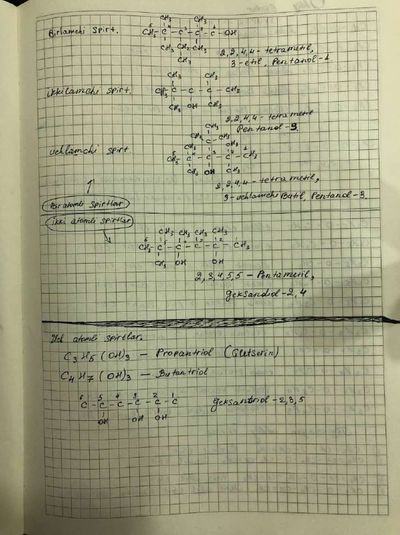 Birlamchi spirt.
CH₃ CH₃
CH₃-C-C-C-C-OH
CH₃ CH₂ CH₃
CH₃
2,2,4,4 - tetrametil,
3-etil, Pentanol-1
ikkilamchi spirt.
CH₃ CH₃
CH₃-C-C-C-CH₃
CH₃ OH CH₃
2,2,4,4 - tetrametil
Pentanol-3.
uchlamchi spirt
CH₃ OH CH₃
2,2,4,4 - tetrametil,
3-uchlamchi Butil, Pentanol-3.
Bir atomli spirtlar
ikki atomli spirtlar
CH₃ CH₃ CH₃ CH₃
CH₃ OH OH
2,3,4,5,5 - Pentametil,
geksandiol-2,4
Uch atomli spirtlar.
C₃H₅(OH)₃ — Propantriol (Glitserin)
C₄H₇(OH)₃ — Butantriol
6 5 4 3 2 1
C-C-C-C-C-C
OH OH OH
geksantriol-2,3,5